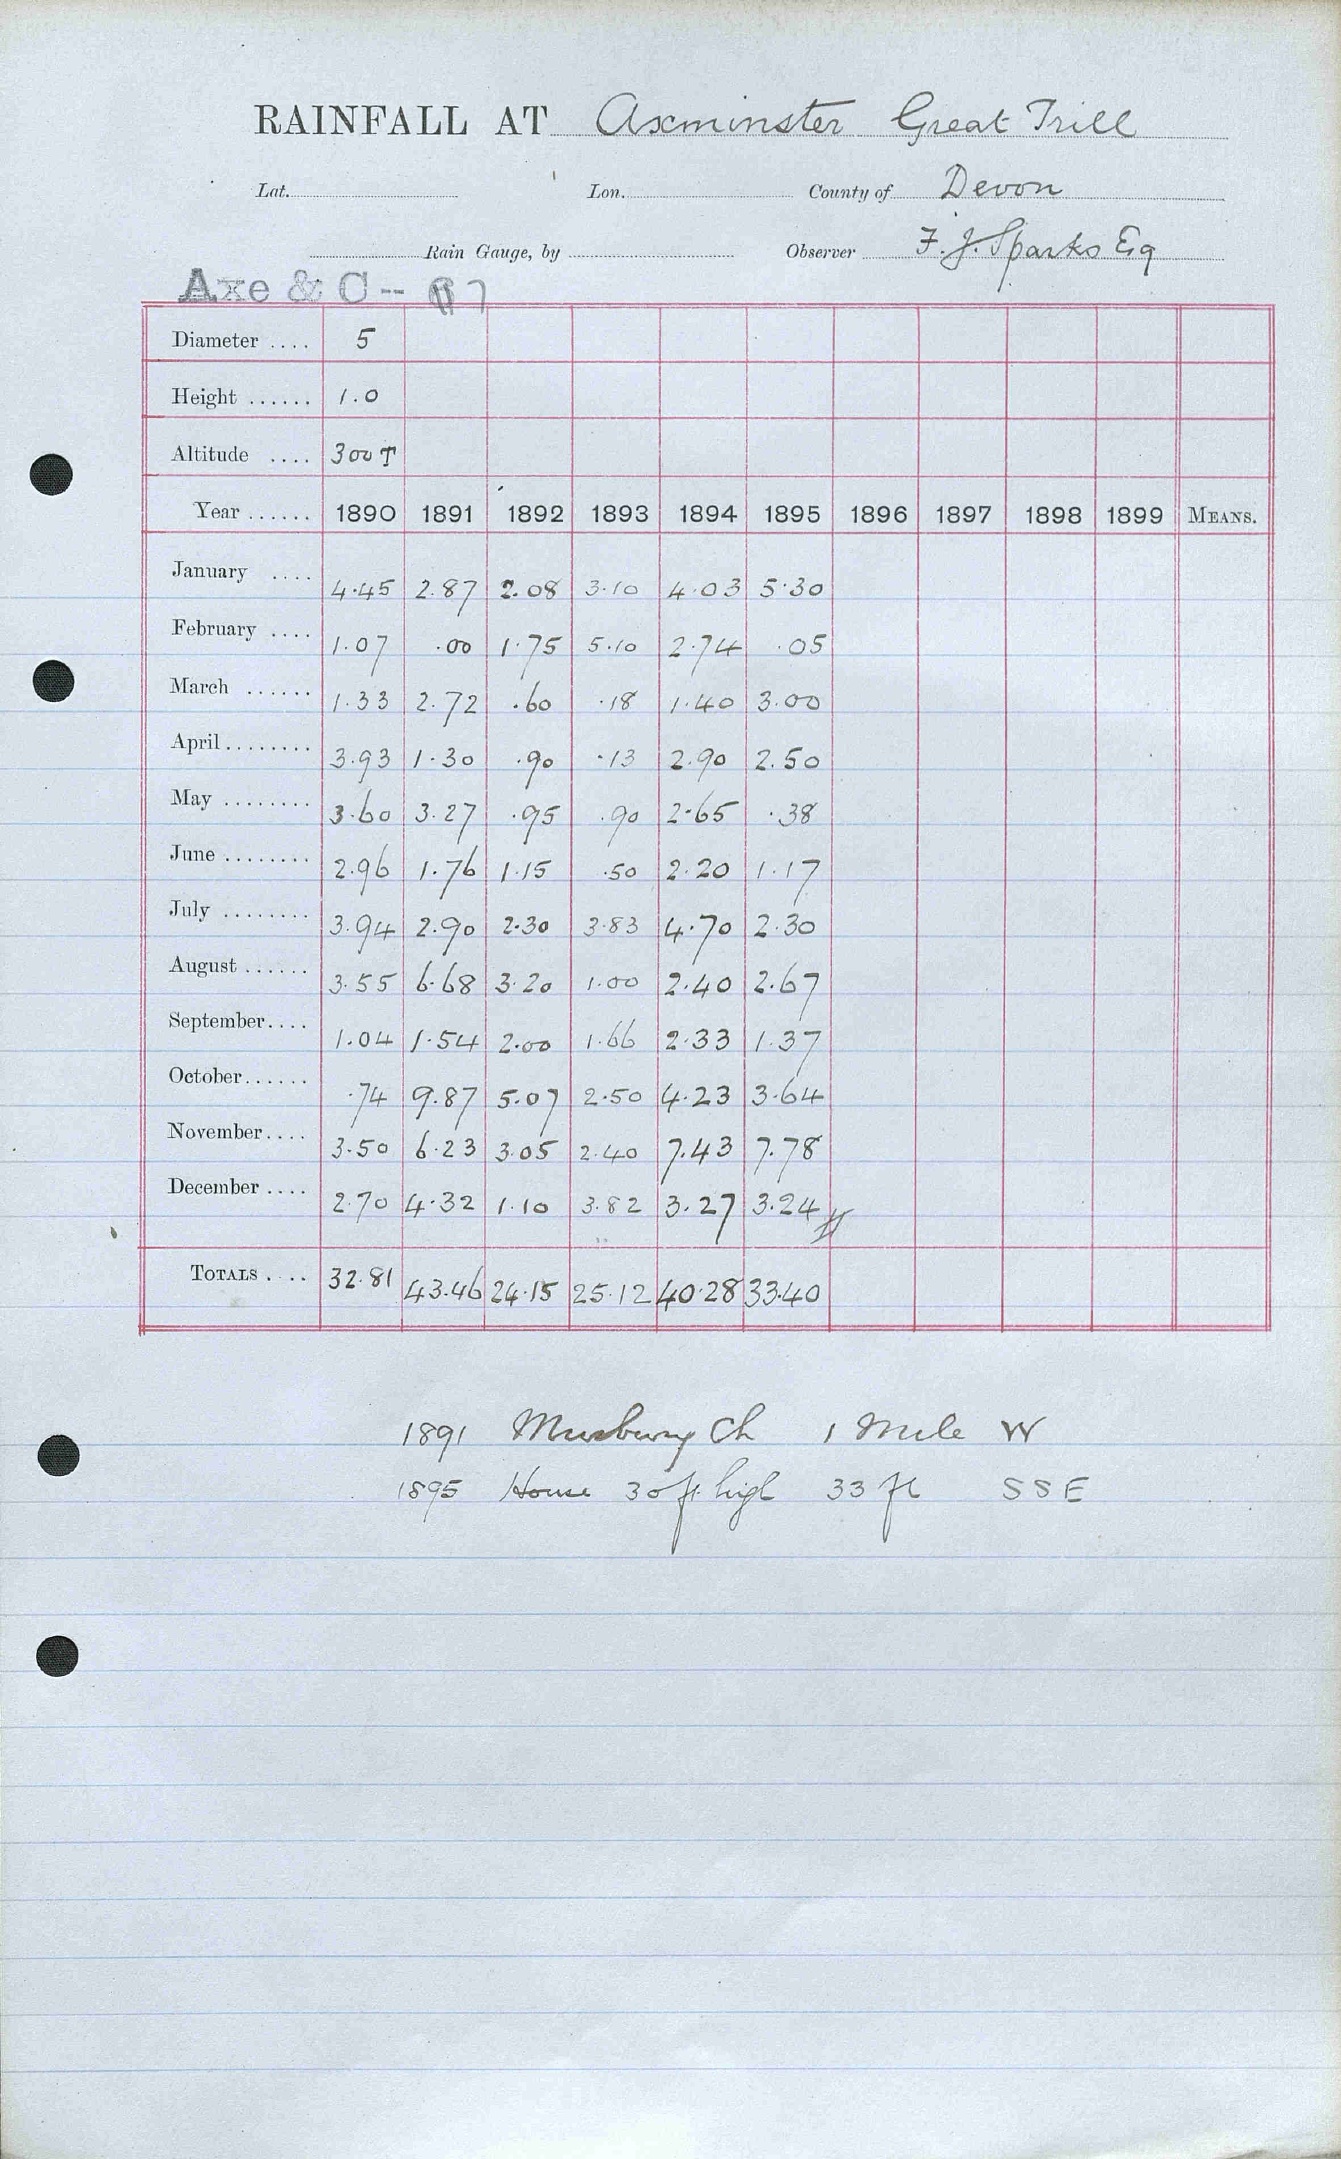 RAINFALL AT Axminster Great Trill
Lat. Lon. County of Devon
Rain Gauge, by Observer F. J. Sparks Esq
Axe & C -- 7
Diameter .... 5
Height ...... 1.0
Altitude .... 300 T
Year ...... 1890 1891 1892 1893 1894 1895 1896 1897 1898 1899 MEANS.
January .... 4.45 2.87 2.08 3.10 4.03 5.30
February .... 1.07 .00 1.75 5.10 2.74 .05
March ...... 1.33 2.72 .60 .18 1.40 3.00
April ........ 3.93 1.30 .90 .13 2.90 2.50
May ........ 3.60 3.27 .95 .90 2.65 .38
June ........ 2.96 1.76 1.15 .50 2.20 1.17
July ........ 3.94 2.90 2.30 3.83 4.70 2.30
August ...... 3.55 6.68 3.20 1.00 2.40 2.67
September .... 1.04 1.54 2.00 1.66 2.33 1.37
October ...... .74 9.87 5.07 2.50 4.23 3.64
November .... 3.50 6.23 3.05 2.40 7.43 7.78
December .... 2.70 4.32 1.10 3.82 3.27 3.24
TOTALS .... 32.81 43.46 24.15 25.12 40.28 33.40
1891 Musbury Ch 1 Mile W
1895 House 30 ft. high 33 ft SSE